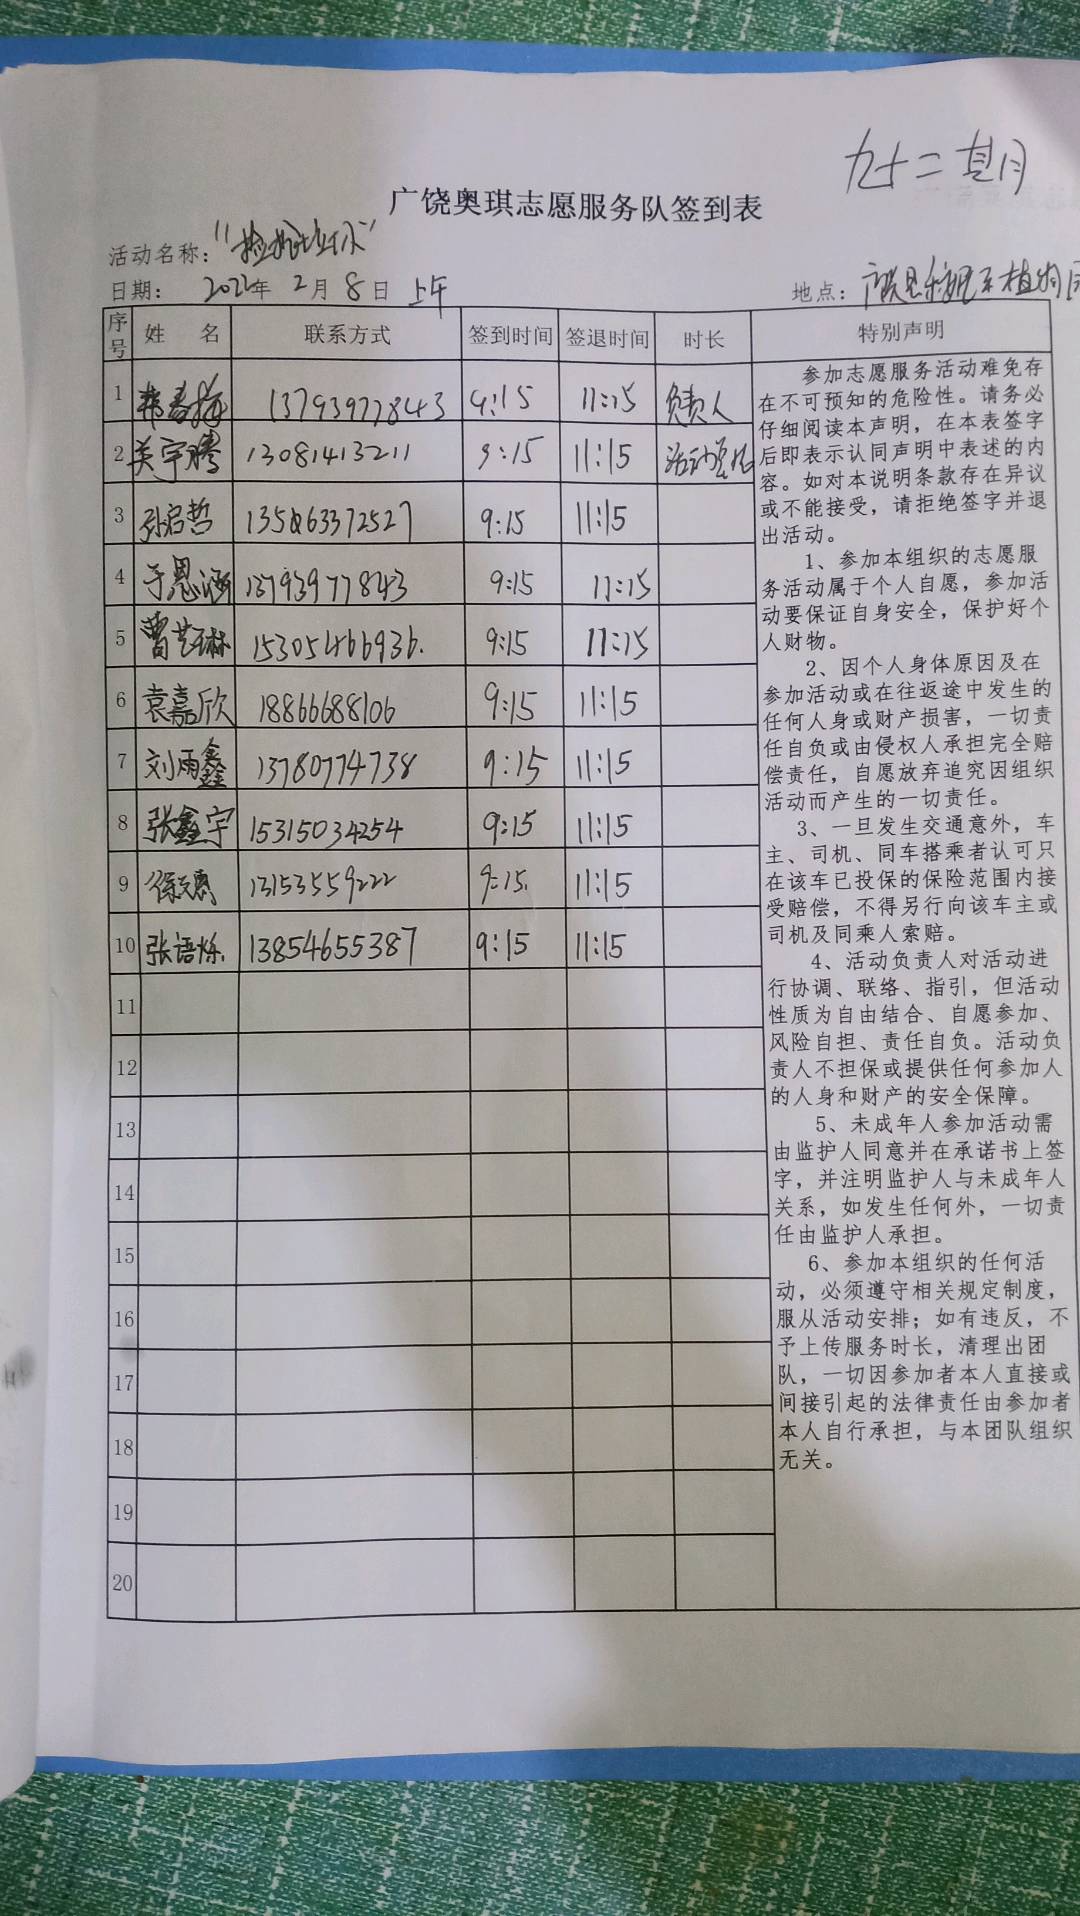 九十二 月
广饶奥琪志愿服务队签到表
活动名称：“捡拾垃圾”
日期： 2022年 2月 8日 上午
地点： 植物园
序号 姓 名 联系方式 签到时间 签退时间 时长 特别声明
1 13793977843 9:15 11:15 负责人
2 13081413211 9:15 11:15 活动
3 孙启哲 9:15 11:15
4 于恩涵 13793977843 9:15 11:15
5 曹艺琳 15305466936. 9:15 11:15
6 袁嘉欣 18866688106 9:15 11:15
7 刘雨鑫 13780774738 9:15 11:15
8 张鑫宇 15315034254 9:15 11:15
9 13153559222 9:15. 11:15
10 张语烁. 13854655387 9:15 11:15
11
12
13
14
15
16
17
18
19
20
参加志愿服务活动难免存
在不可预知的危险性。请务必
仔细阅读本声明，在本表签字
后即表示认同声明中表述的内
容。如对本说明条款存在异议
或不能接受，请拒绝签字并退
出活动。
1、参加本组织的志愿服
务活动属于个人自愿，参加活
动要保证自身安全，保护好个
人财物。
2、因个人身体原因及在
参加活动或在往返途中发生的
任何人身或财产损害，一切责
任自负或由侵权人承担完全赔
偿责任，自愿放弃追究因组织
活动而产生的一切责任。
3、一旦发生交通意外，车
主、司机、同车搭乘者认可只
在该车已投保的保险范围内接
受赔偿，不得另行向该车主或
司机及同乘人索赔。
4、活动负责人对活动进
行协调、联络、指引，但活动
性质为自由结合、自愿参加、
风险自担、责任自负。活动负
责人不担保或提供任何参加人
的人身和财产的安全保障。
5、未成年人参加活动需
由监护人同意并在承诺书上签
字，并注明监护人与未成年人
关系，如发生任何外，一切责
任由监护人承担。
6、参加本组织的任何活
动，必须遵守相关规定制度，
服从活动安排；如有违反，不
予上传服务时长，清理出团
队，一切因参加者本人直接或
间接引起的法律责任由参加者
本人自行承担，与本团队组织
无关。